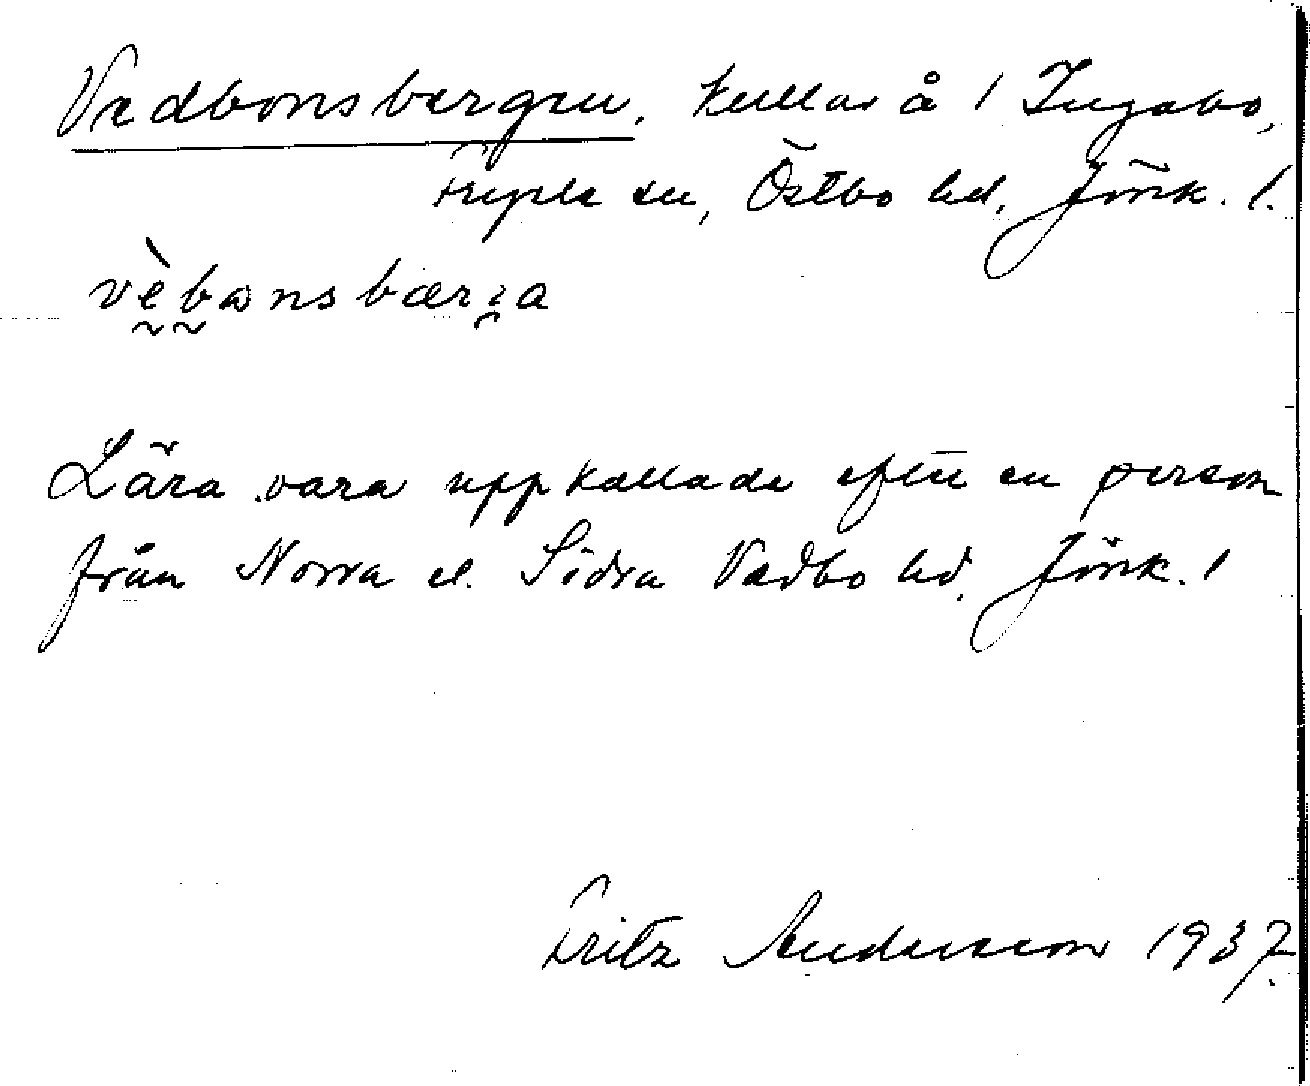 Vedbonsbergen. Kullar å 1 Ingabo,
Fryele sn, Östbo hd, Jönk. l.
vèbωnsbærɜa
Lära vara uppkallade efter en person
från Norra el. Södra Vedbo hd. Jönk. l
Fritz Andersson 1937.